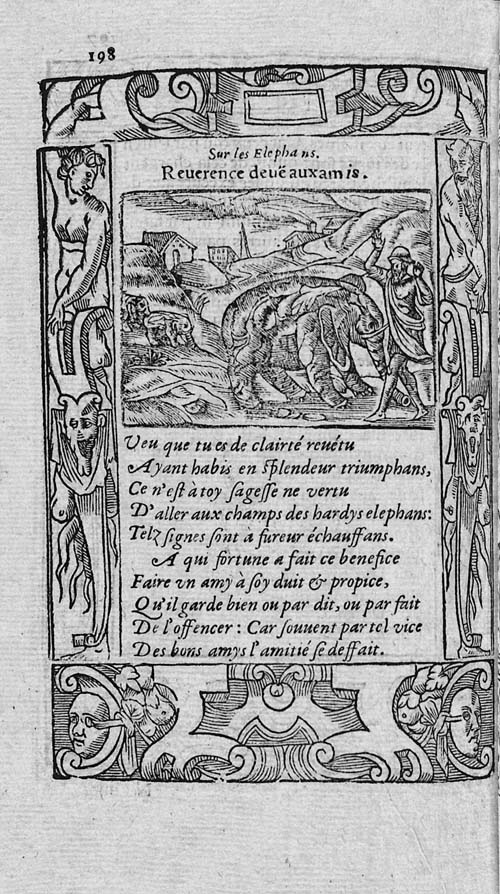 198
Sur les Elephans.
Reuerence deuë aux amis.
Veu que tu es de clairté reuétu
Ayant habis en ſplendeur triumphans,
Ce n'eſt à toy ſageſſe ne vertu
D'aller aux champs des hardys elephans:
Telz ſignes ſont à fureur échauffans.
A qui fortune a fait ce benefice
Faire vn amy à ſoy duit & propice,
Qu'il garde bien ou par dit, ou par fait
De l'offencer: Car ſouuent par tel vice
Des bons amys l'amitié ſe deffait.